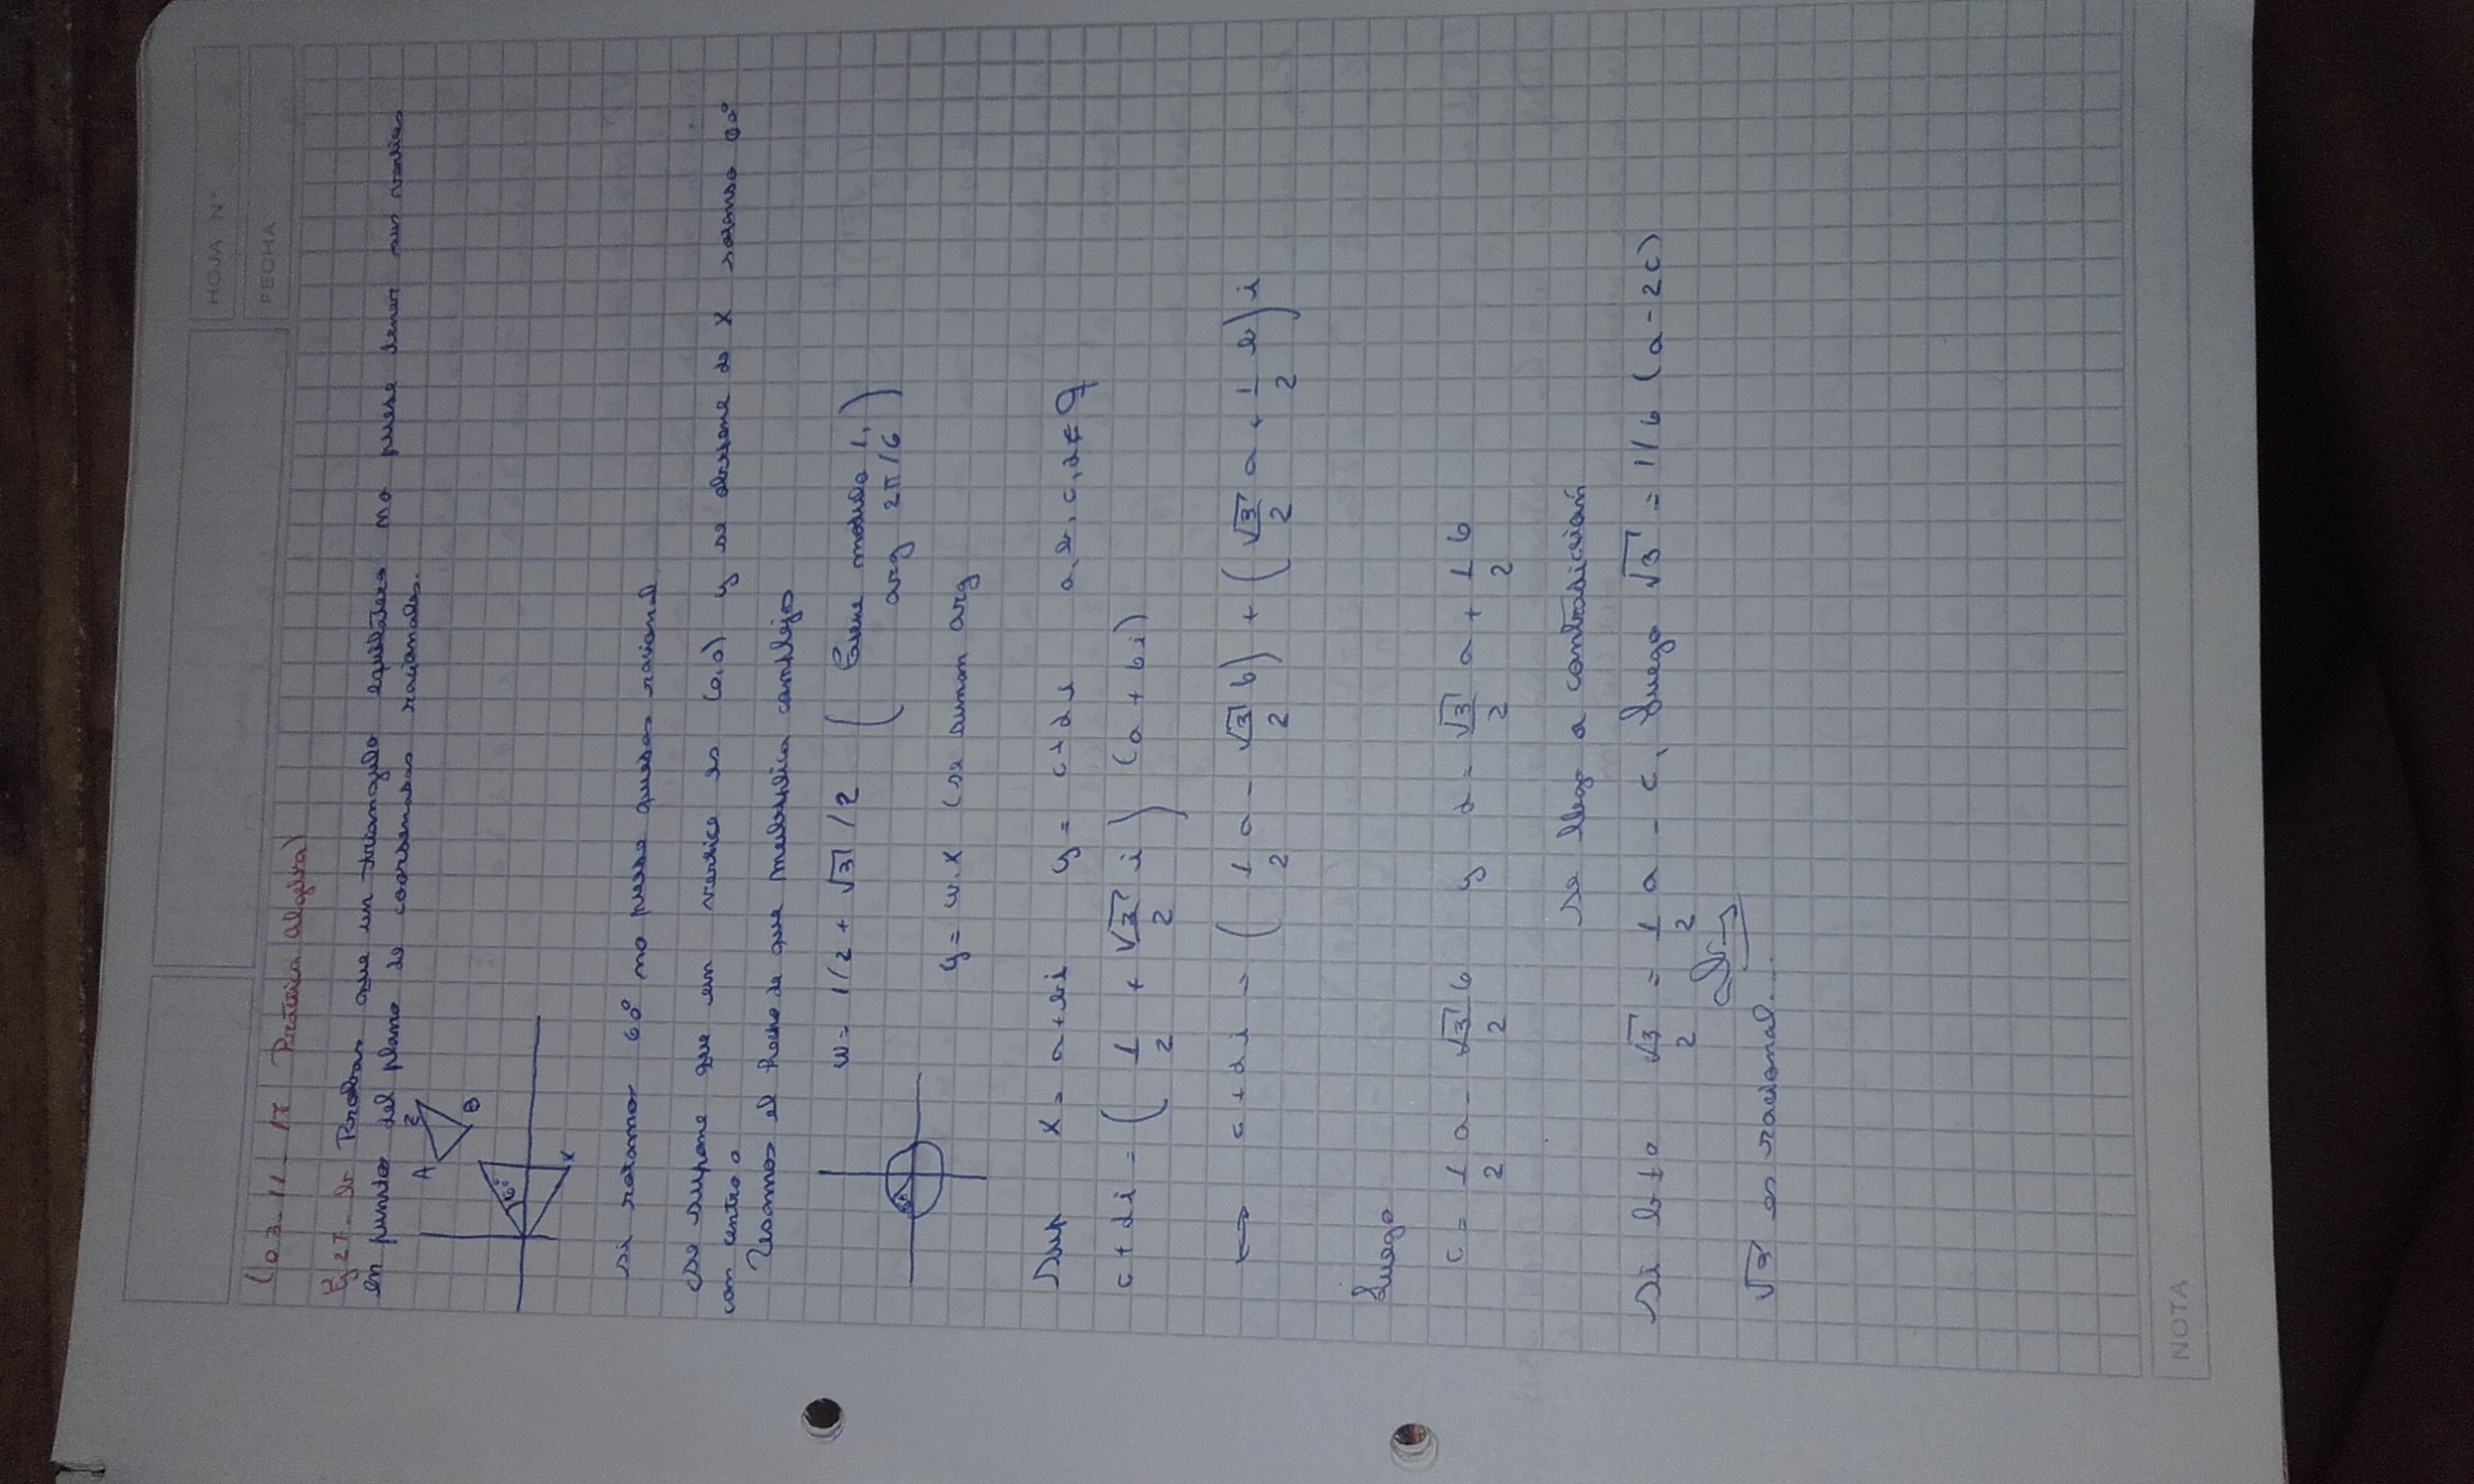 HOJA N°
FECHA
(03-11-17 Práctica algebra)
Ej 27- b Probar que un triangulo equilátero no puede tener sus vertices
en puntos del plano de coordenadas racionales.
A
Z
B
60°
x
Si rotamos 60° no puede quedar racional
Se supone que un vertice es (0,0) y se obtiene de x rotando 60°
con centro 0
Usamos el hecho de que multiplica complejos
w= 1/2 + √3 /2 ( tiene modulo 1,
arg 2π/6 )
y = w.x (se suman arg
Sup x = a+bi y = c+di a, b, c, d ∈ Q
c+di = ( 1/2 + √3/2 i ) (a + bi)
↔ c+di = ( 1/2 a - √3/2 b) + ( √3/2 a + 1/2 b ) i
Luego
c = 1/2 a - √3/2 b y d = √3/2 a + 1/2 b
se llega a contradicción
Si b ≠ 0 √3/2 = 1/2 a - c, Luego √3 = 1/b (a-2c)
abs
√3 es racional...
NOTA